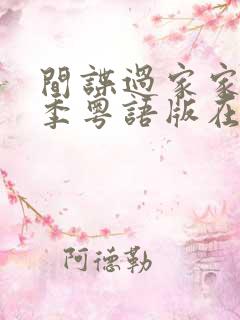 間諜過家家
季粵語版在
阿德勒